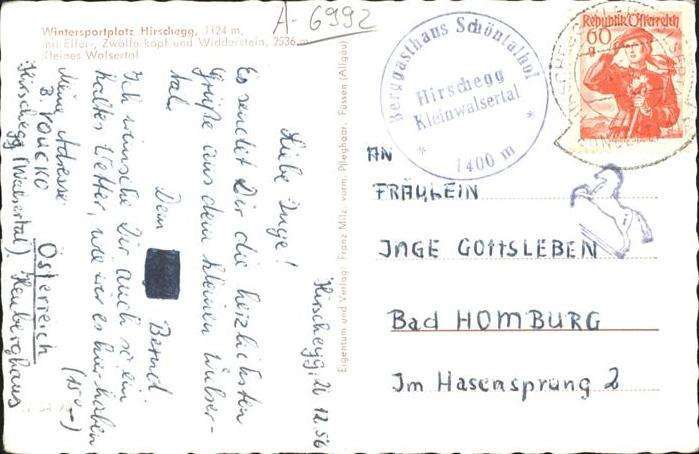 Wintersportplatz Hirschegg, 1124 m,
mit Elfer-, Zwölferkopf und Widderstein, 2536 m
Kleines Walsertal
A-6992
Berggasthaus Schöntalhof
Hirschegg
Kleinwalsertal
* 1400 m *
Republik Österreich
60
g
Eigentum und Verlag Franz Milz vorm. Pfleghaar, Füssen (Allgäu)
Hirschegg, 21 12.56
Liebe Inge!
Es sendet Dir die herzlichsten
Grüße aus dem kleinen Walser-
tal
Dein
Bernd.
Ich wünsche Dir auch so ein
kaltes Wetter, wie wir es hier haben
Meine Adresse
B
Österreich
Hirschegg (Walsertal) Heuberghaus
AN
FRÄULEIN
INGE GOTTSLEBEN
Bad HOMBURG
Im Hasensprung 2